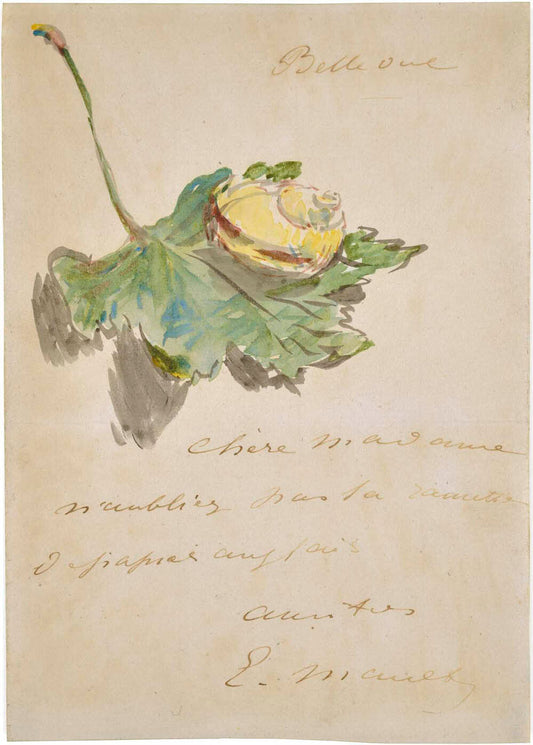 Bellevue
chère madame
n'oubliez pas la
de papier anglais
amitiés
E. Manet